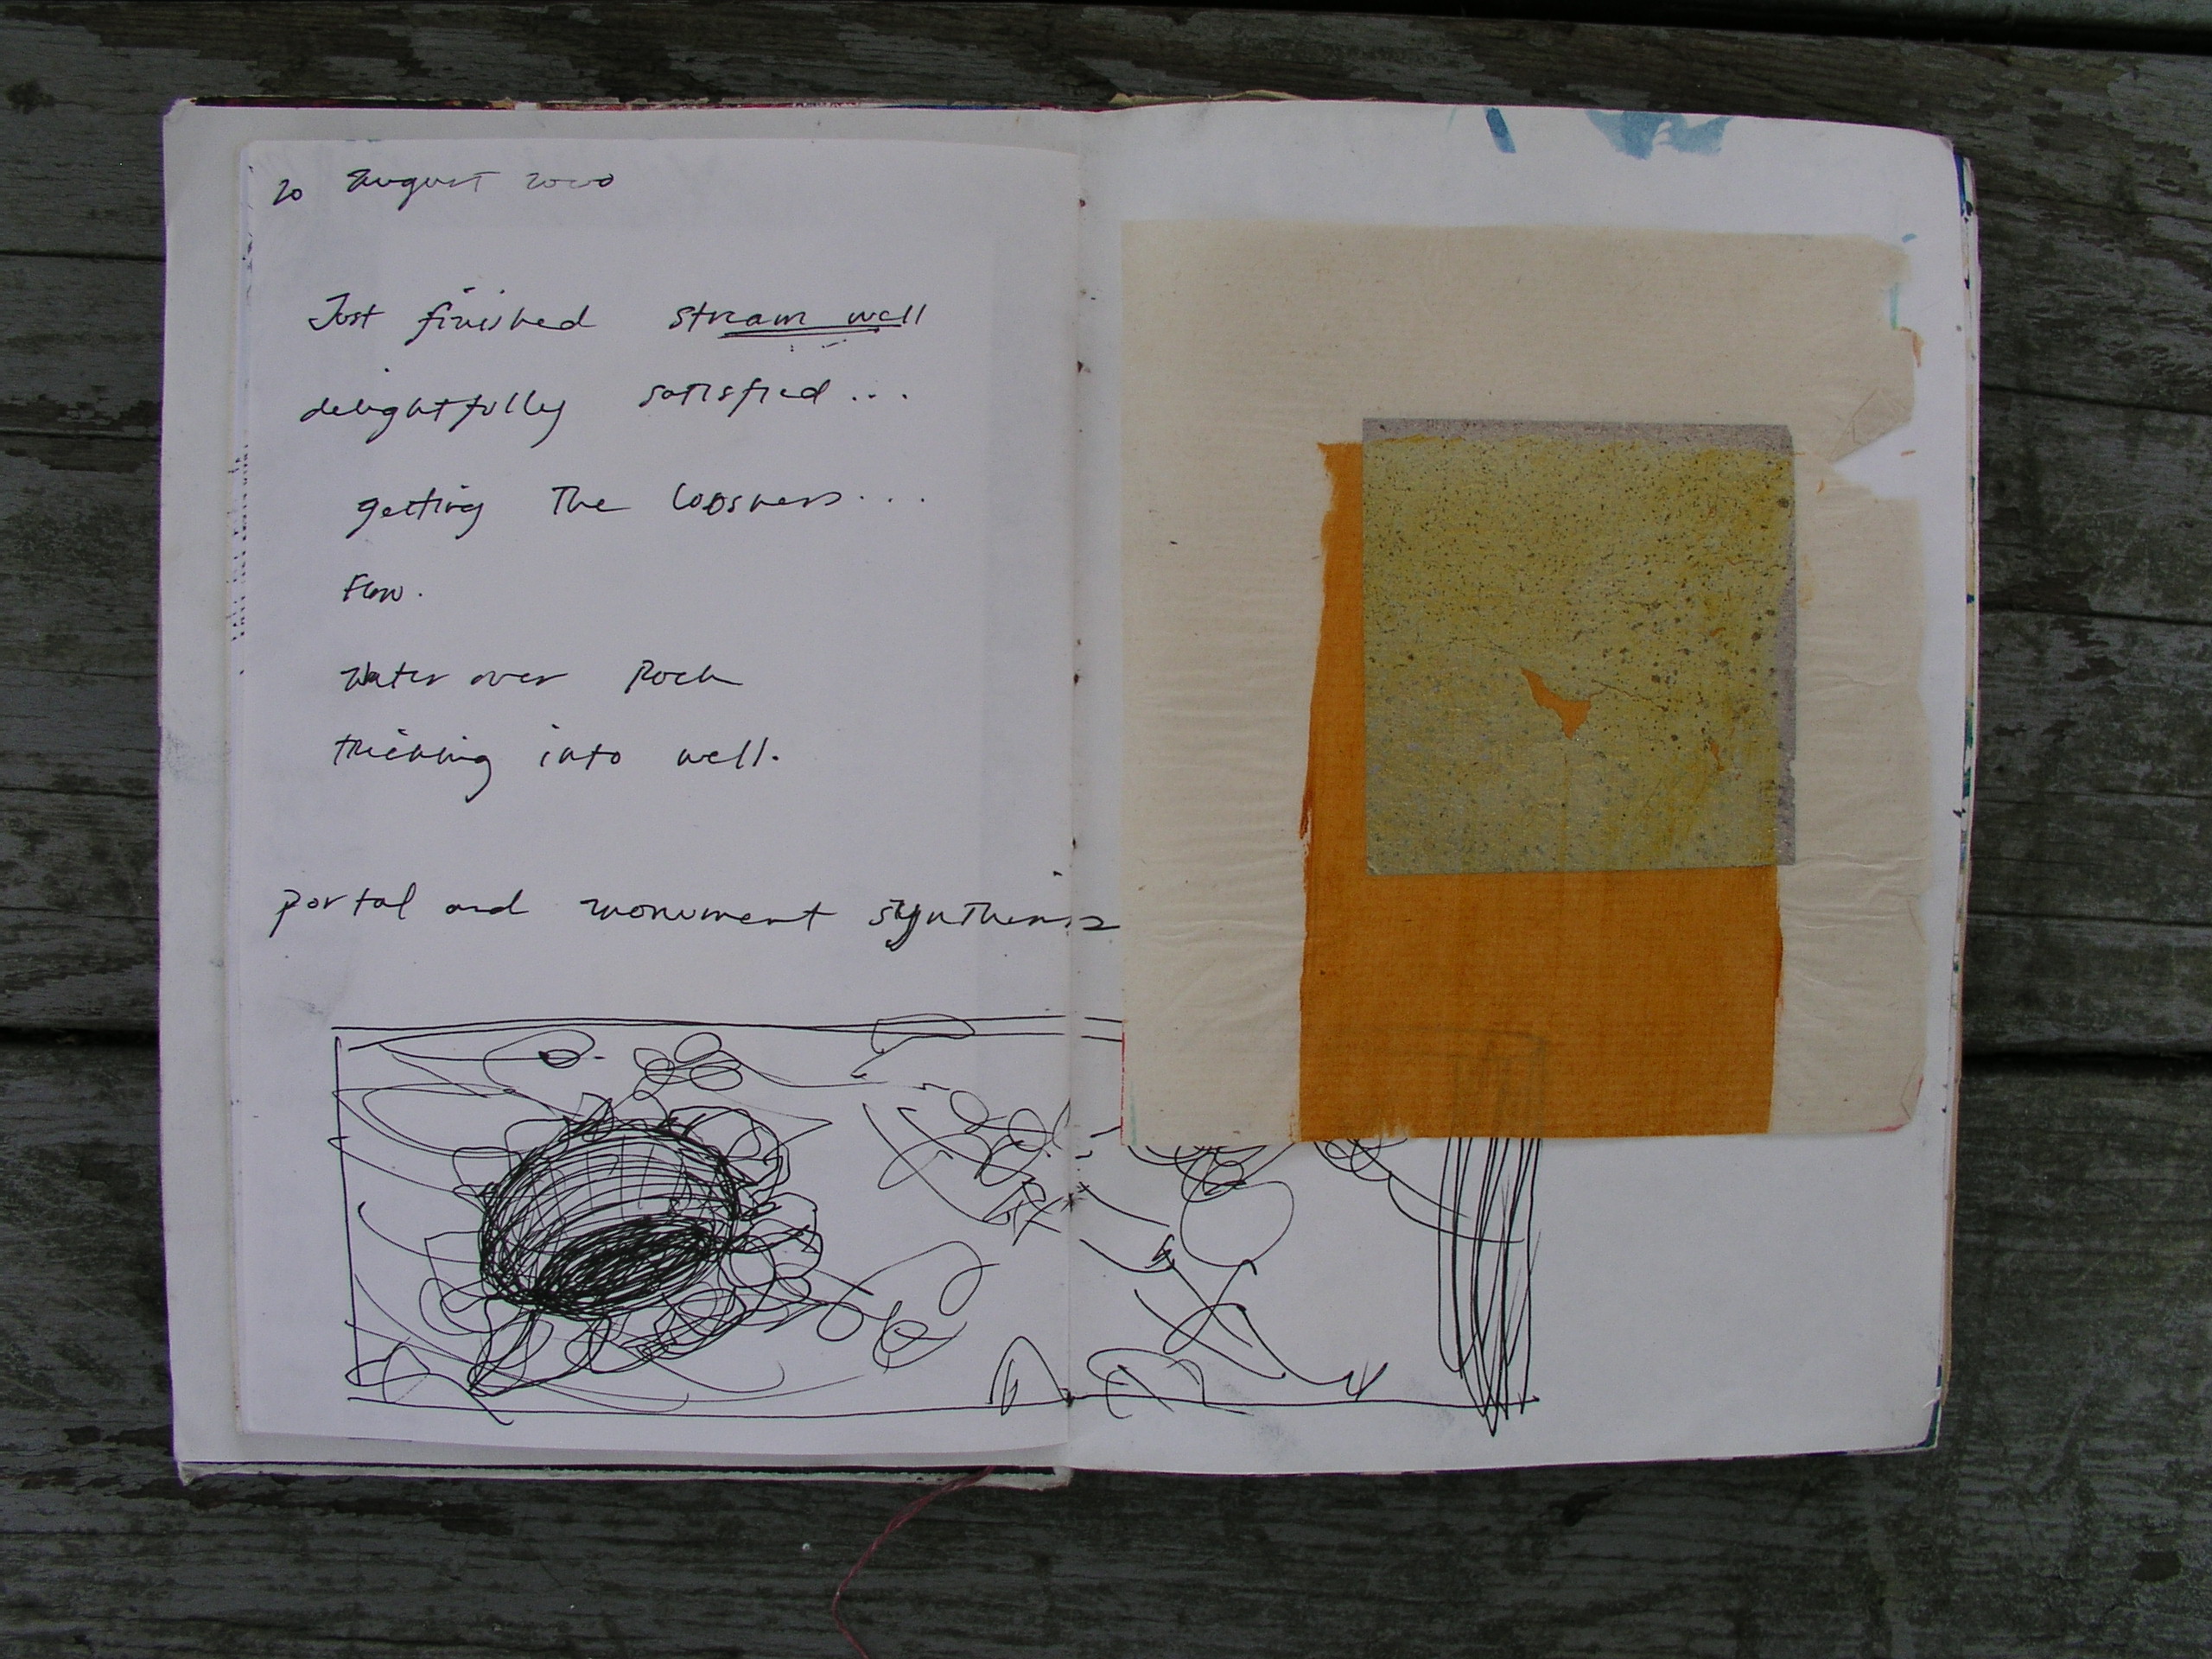 20 August 2000
Just finished stream well
delightfully satisfied....
getting The looseness...
Flow.
Water over Rock
thinking into well.
portal and monument synthesis